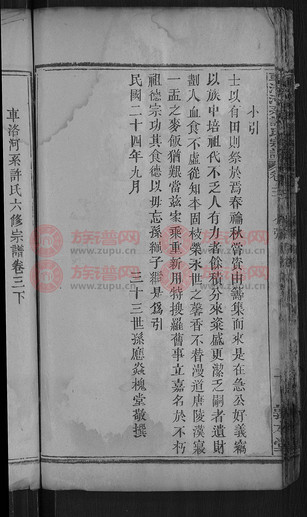 小引
士以有田則祭於焉春禴秋嘗資田疇集而來是在急公好義竊
以族中培祖代不乏人有力者以餘積分來粢盛更潔乏嗣者遺財
劃入血食不虛從知本固枝榮永世之馨香不替漫道唐陵漢寢
一盂之麥飯猶艱當茲家乘重新用特搜羅舊事立嘉名於不朽
祖德宗功其食德以毋忘孫孫子子繼為引
民國二十四年九月　三十三世孫應焱槐堂敬撰
車洛河系許氏六修宗譜卷三下
族谱网
www.zupu.cn